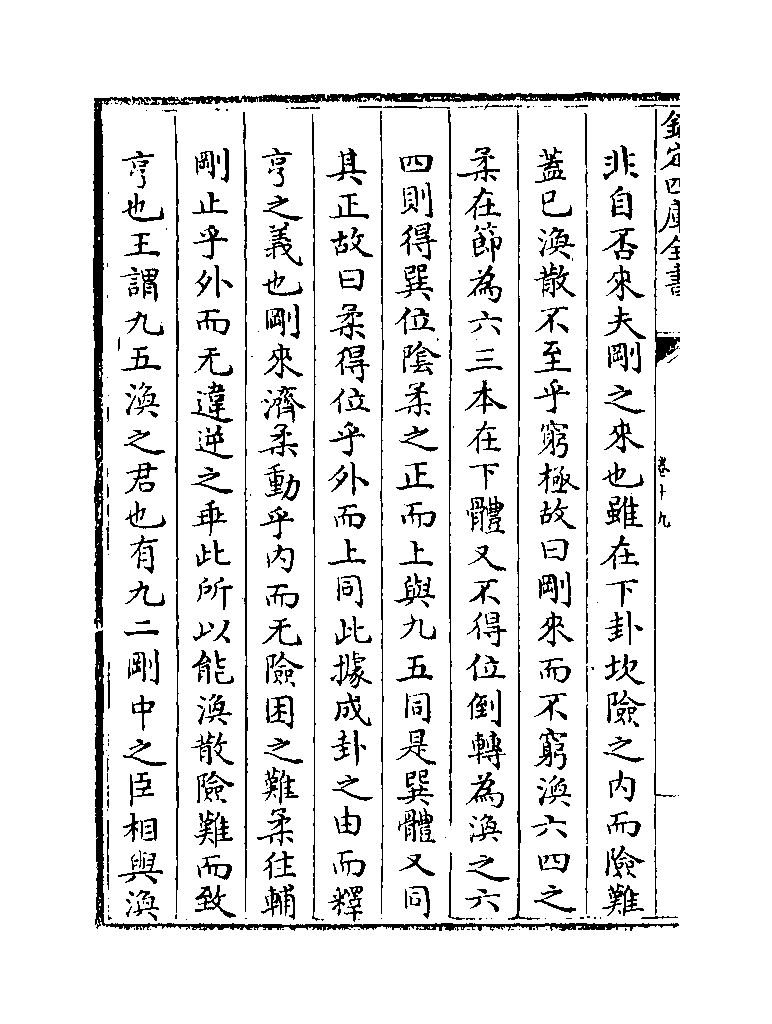 欽定四庫全書
卷十九
非自否來夫剛之來也雖在下卦坎險之内而險難
蓋已渙散不至乎窮極故曰剛來而不窮渙六四之
柔在節為六三本在下體又不得位倒轉為渙之六
四則得巽位陰柔之正而上與九五同是巽體又同
其正故曰柔得位乎外而上同此據成卦之由而釋
亨之義也剛來濟柔動乎内而无險困之難柔往輔
剛止乎外而无違逆之乖此所以能渙散險難而致
亨也王謂九五渙之君也有九二剛中之臣相與渙